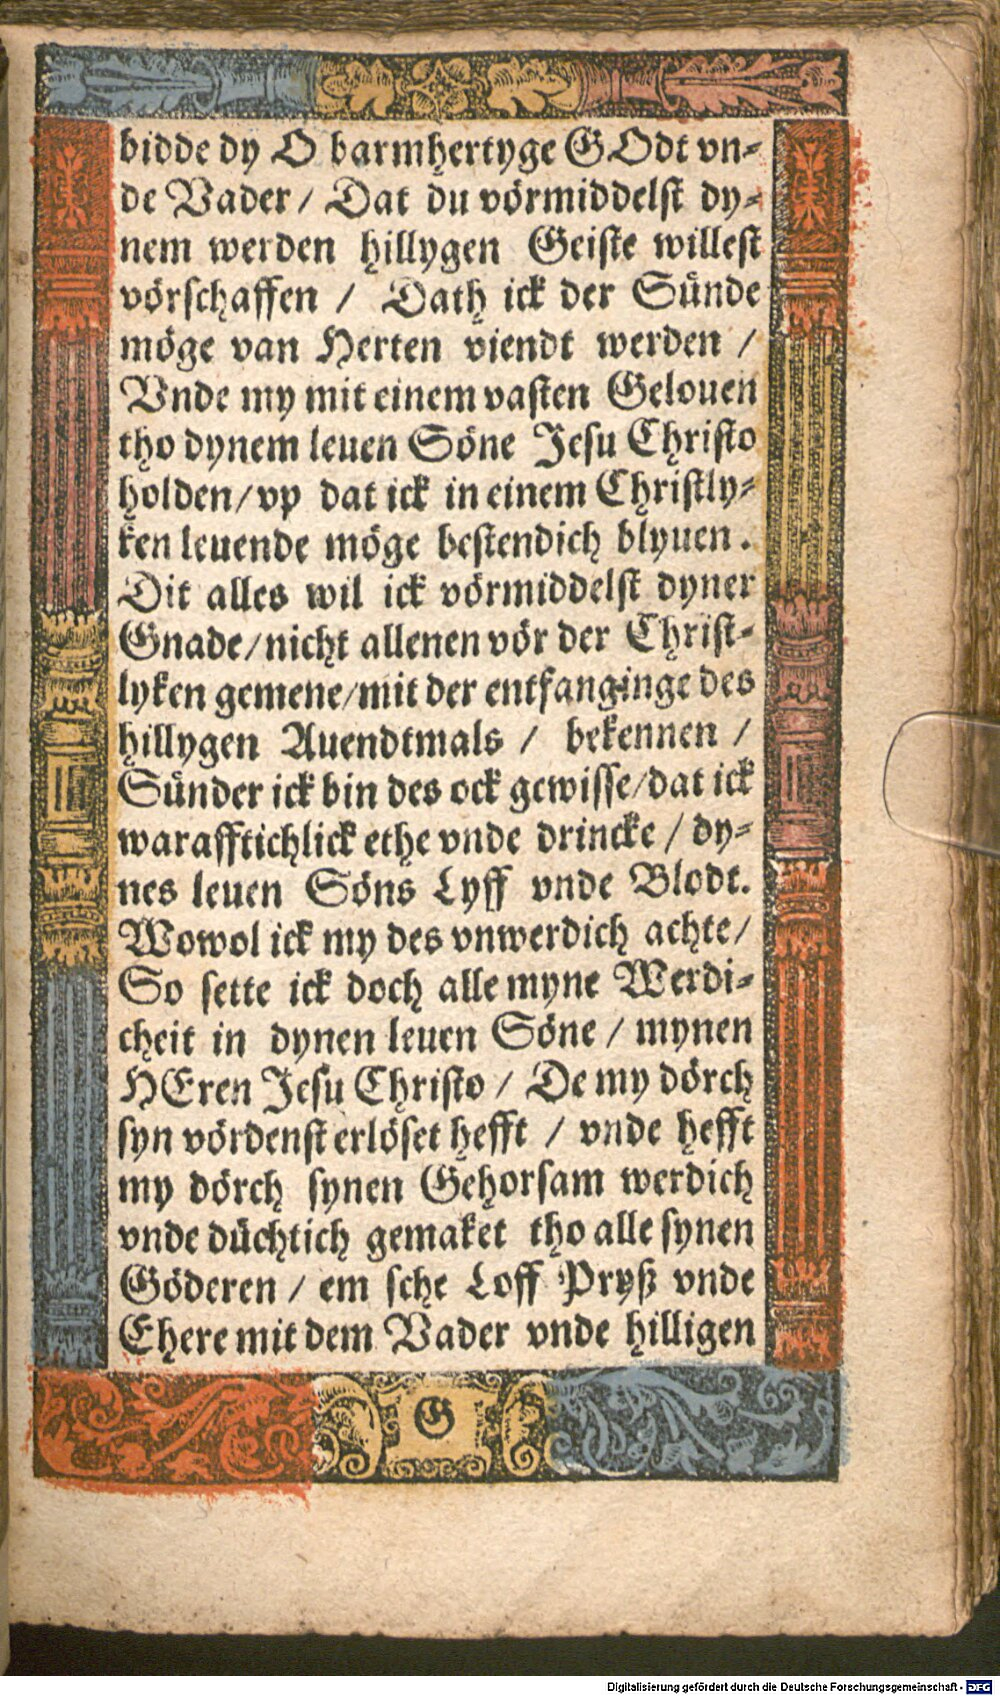 bidde dy O barmhertyge GOdt vn⸗
de Vader / Dat du vörmiddelst dy⸗
nem werden hillygen Geiste willest
vörschaffen / Dath ick der Sünde
möge van Herten viendt werden /
Vnde my mit einem vasten Gelouen
tho dynem leuen Söne Jesu Christo
holden/vp dat ick in einem Christly⸗
ken leuende möge bestendich blyuen.
Dit alles wil ick vörmiddelst dyner
Gnade/nicht allenen vör der Christ⸗
lyken gemene/mit der entfanginge des
hillygen Auendtmals / bekennen /
Sünder ick bin des ock gewisse/dat ick
warafftichlick ethe vnde drincke / dy⸗
nes leuen Söns Lyff vnde Blodt.
Wowol ick my des vnwerdich achte/
So sette ick doch alle myne Werdi⸗
cheit in dynen leuen Söne / mynen
HEren Jesu Christo / De my dörch
syn vördenst erlöset hefft / vnde hefft
my dörch synen Gehorsam werdich
vnde düchtich gemaket tho alle synen
Göderen / em sche Loff Pryß vnde
Ehere mit dem Vader vnde hilligen
G
Digitalisierung gefördert durch die Deutsche Forschungsgemeinschaft - DFG